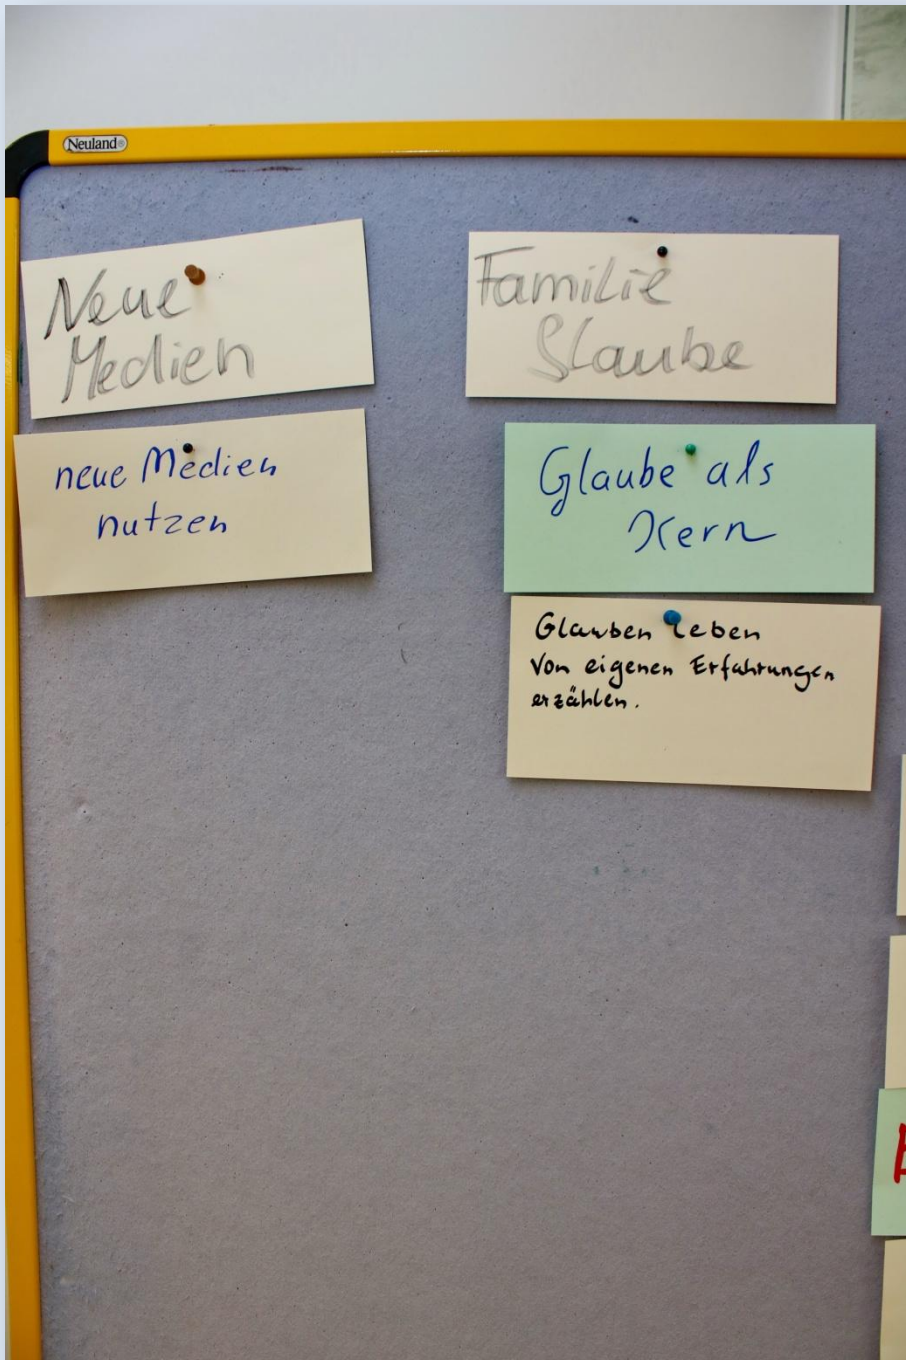 Neuland
Neue
Medien
neue Medien
nutzen
Familie
Glaube
Glaube als
Kern
Glauben leben
Von eigenen Erfahrungen
erzählen.